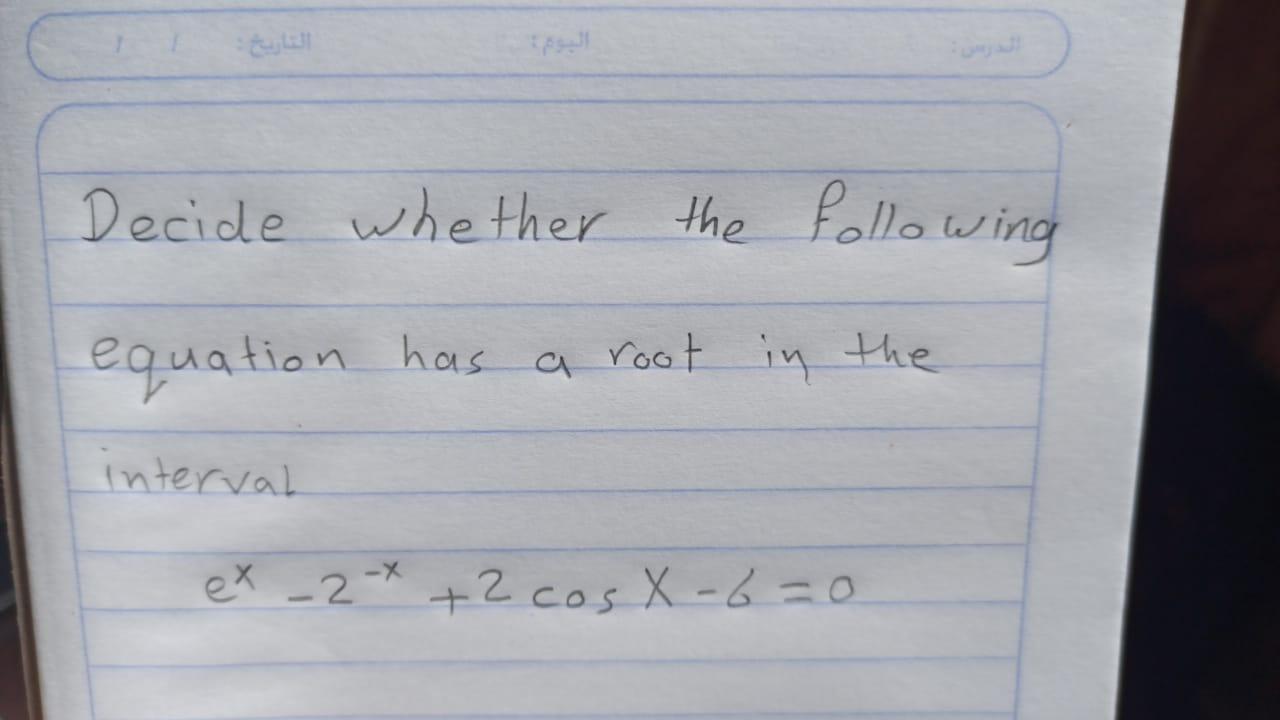 الدرس: اليوم: التاريخ: / /
Decide whether the following
equation has a root in the
interval
e^x - 2^-x + 2 cos x - 6 = 0